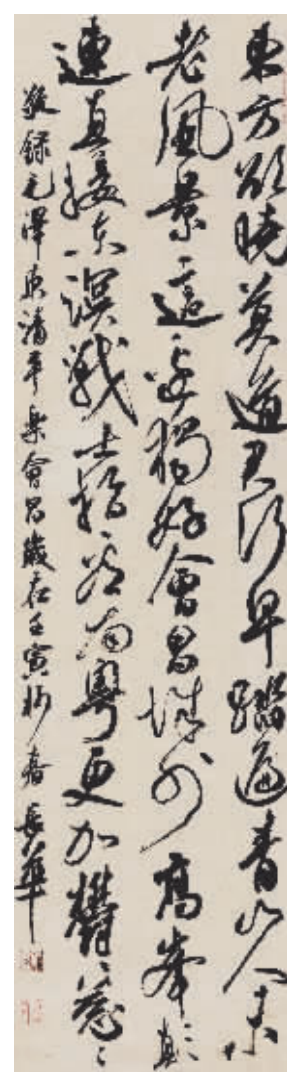 東方欲曉莫道君行早踏遍青山人未
老風景這邊獨好會昌城外高峯顛
連直接东溟戰士指看南粵更加欝々葱々
敬録毛澤東清平樂會昌歲在壬寅杪春長華